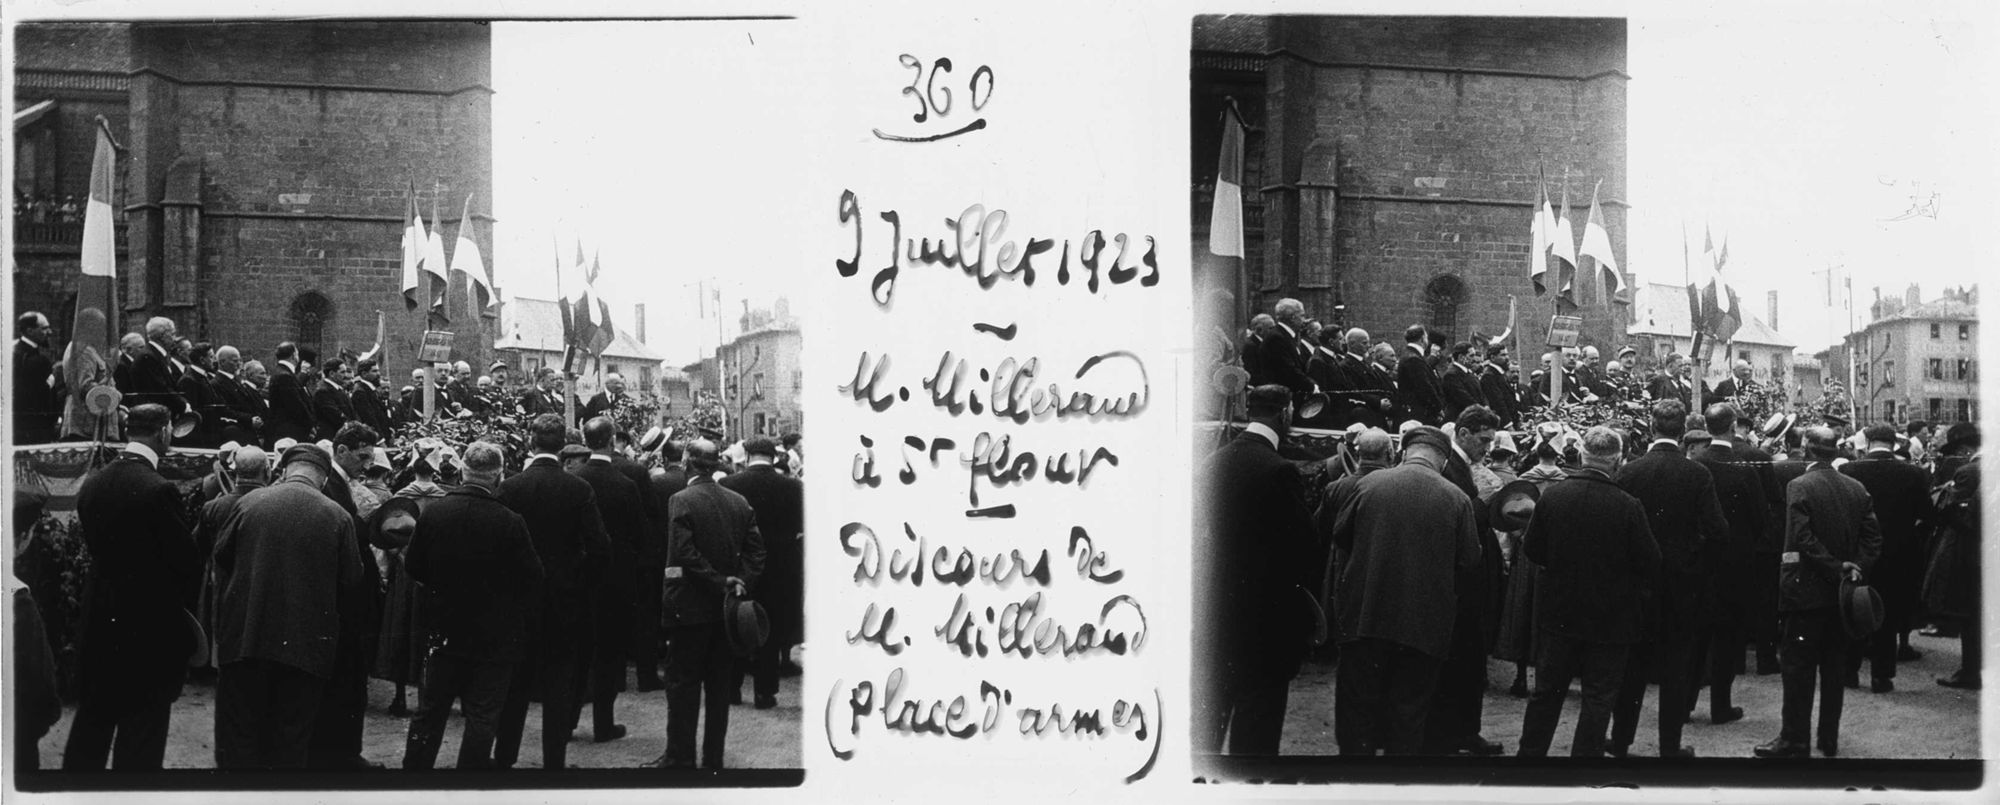 360
9 Juillet 1923
M. Millerand
à St flour
Discours de
M. Millerand
(Place d'armes)